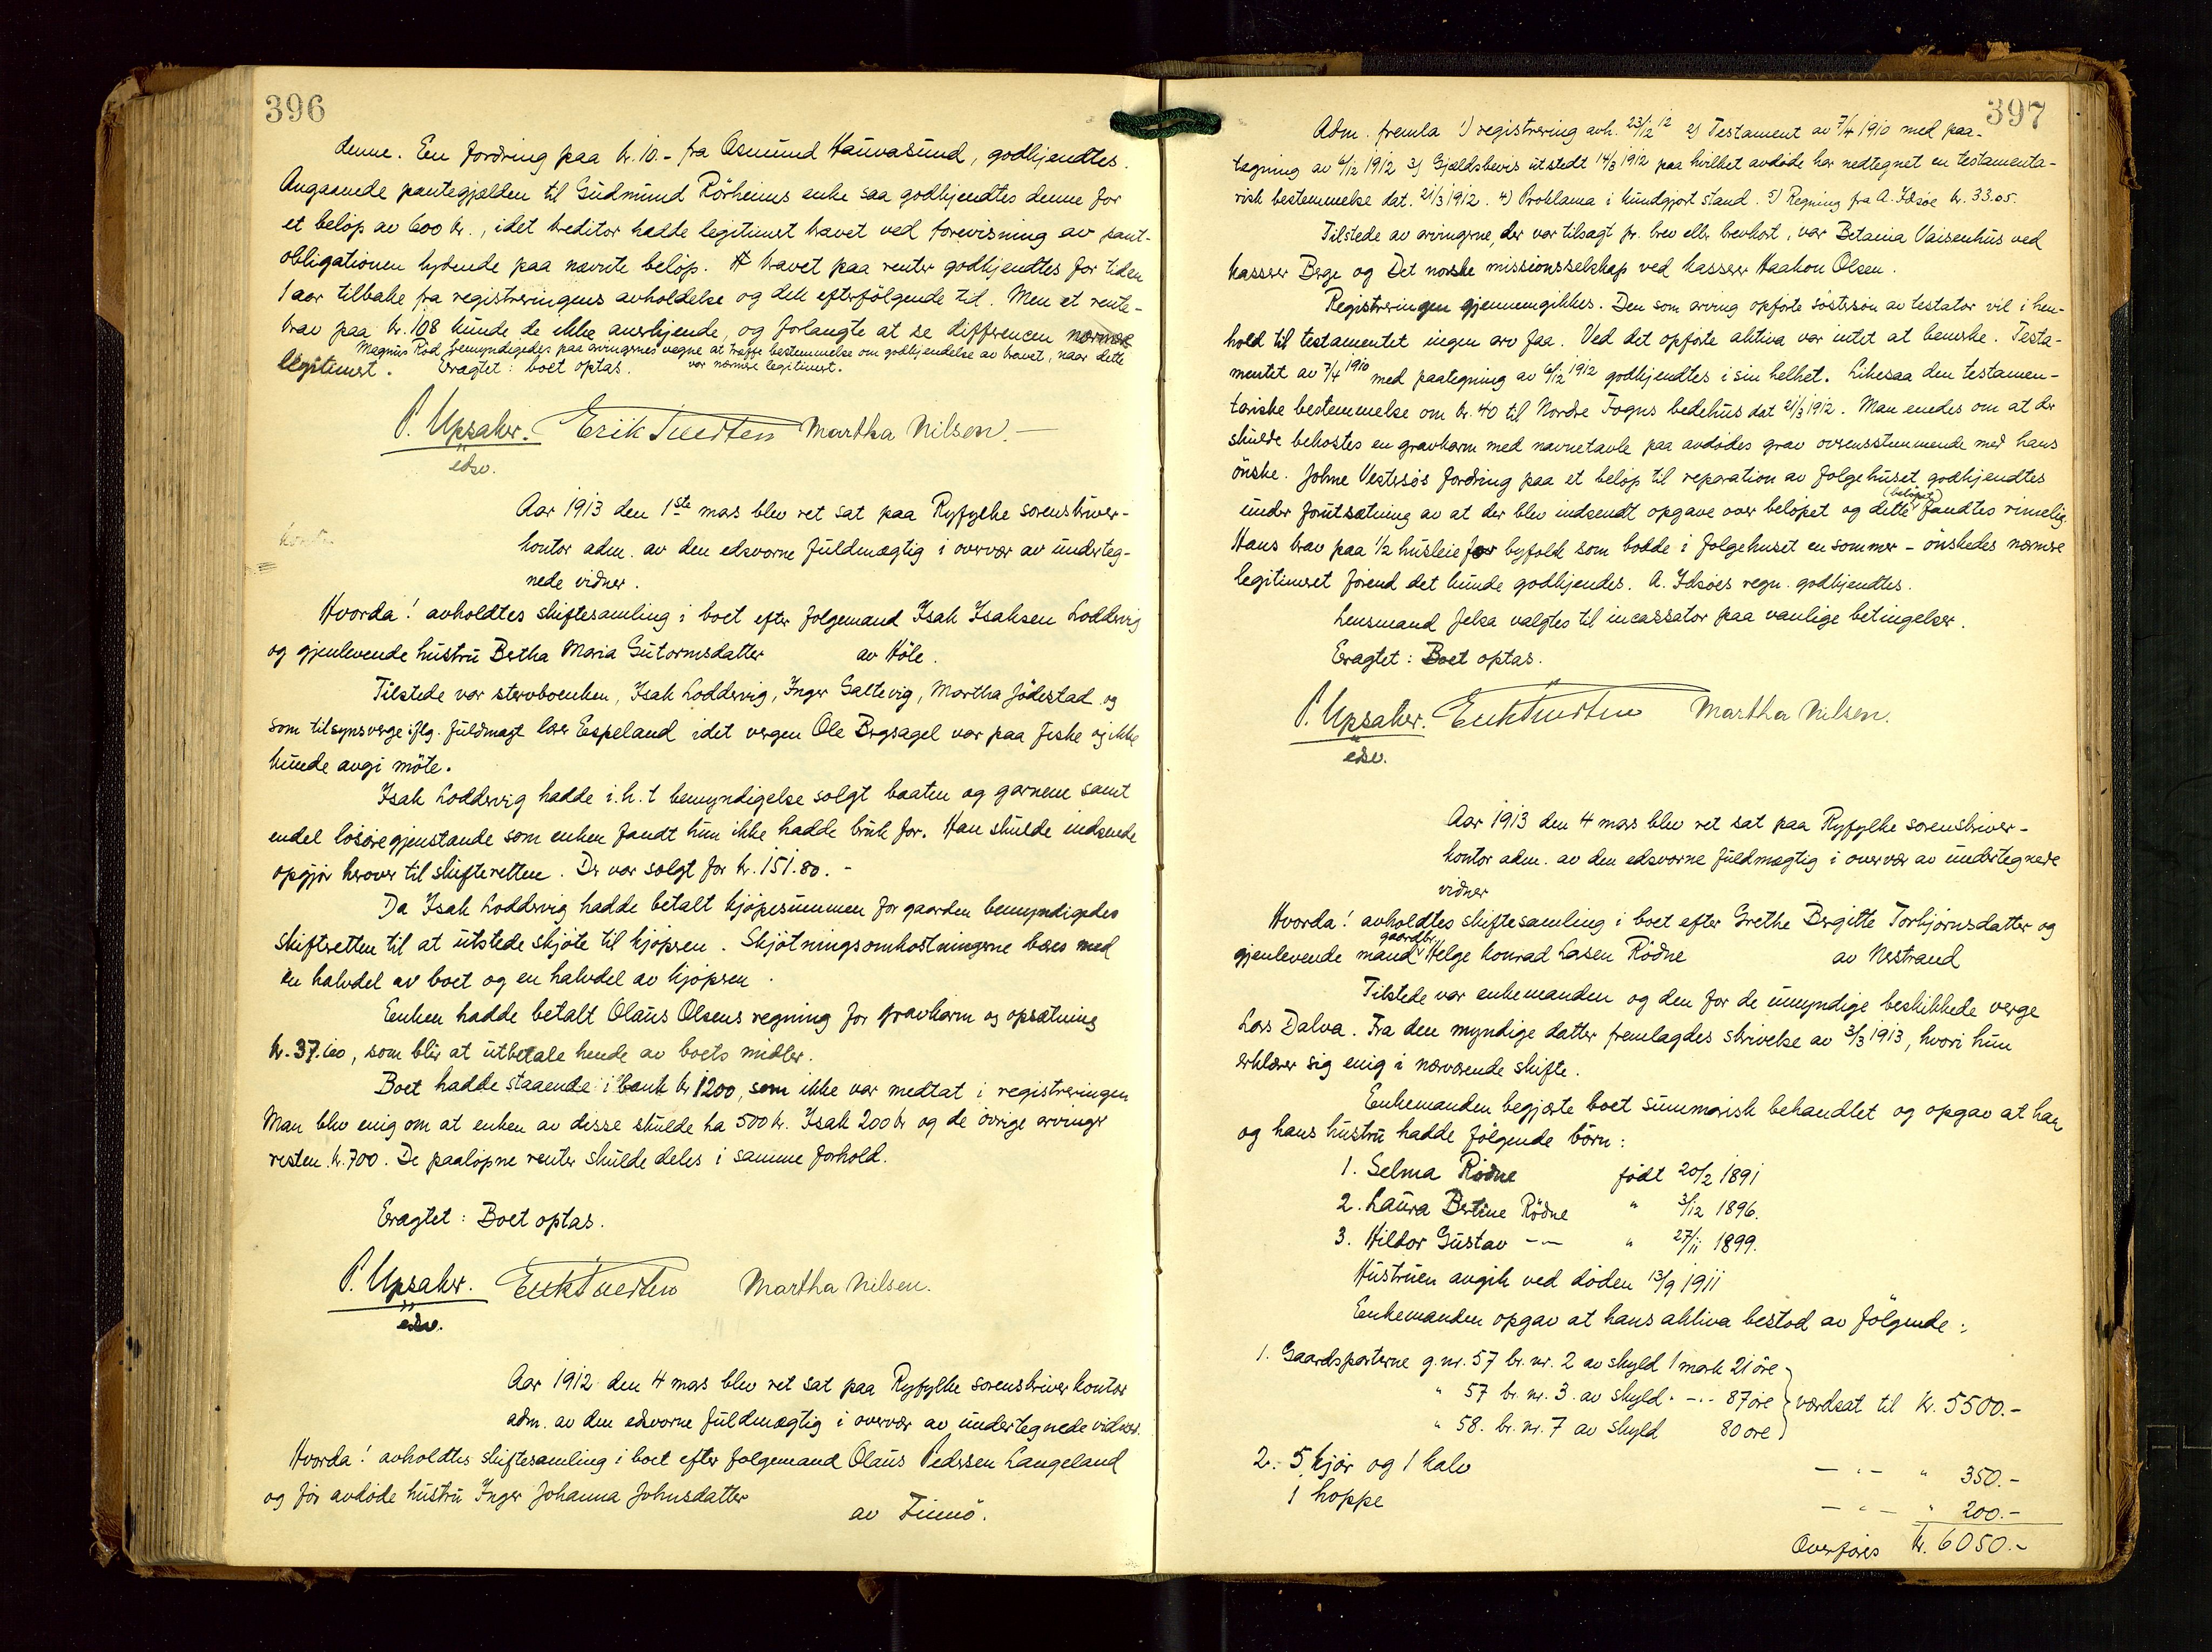 396
denne. En fordring paa kr. 10.- fra Asmund Hauvasund, godkjendtes.
Angaaende pantegjælden til Gudmund Rörheims enke saa godkjendtes denne for
et belöp av 600 kr., idet kreditor hadde legitimert kravet ved forevisning av pant-
obligationen lydende paa nævnte belöp. Kravet paa renter godkjendtes for tiden
1 aar tilbake fra registreringens avholdelse og den efterfölgende tid. Men et rente-
krav paa kr. 108 kunde de ikke anerkjende, og forlangte at se differencen nærmere
Magnus Röd bemyndigedes paa arvingernes vegne at træffe bestemmelse om godkjendelse av kravet, naar dette
legitimert. Eragtet: boet optas. var nærmere legitimert.
P. Upsaker. Erik Tuedten Martha Nilsen.-
edsv.
Aar 1913 den 1ste mars blev ret sat paa Ryfylke sorenskriver-
kontor adm. av den edsvorne fuldmægtig i overvær av underteg-
nede vidner.
Hvorda! avholdtes skiftesamling i boet efter folgemand Isak Isaksen Loddervig
og gjenlevende hustru Bertha Maria Gutormsdatter av Höle.
Tilstede var stervboenken, Isak Loddervig, Inger Galtevig, Martha Jödestad og
som tilsynsverge iflg. fuldmagt lær Espeland idet vergen Ole Bergsagel var paa fiske og ikke
kunde avgi möte.
Isak Loddervig hadde i.h.t bemyndigelse solgt baaten og garnene samt
endel lösöregjenstande som enken fandt hun ikke hadde bruk for. Han skulde indsende
opgjör herover til skifteretten. Der var solgt for kr. 151.80.-
Da Isak Loddervig hadde betalt kjöpesummen for gaarden bemyndigedes
skifteretten til at utstede skjöte til kjöperen. Skjötningsomkostningerne bæres med
en halvdel av boet og en halvdel av kjöperen.
Enken hadde betalt Olaus Olsens regning for gravkarm og opsætning
kr. 37.60, som blir at utbetale hende av boets midler.
Boet hadde staaende i bank kr 1200, som ikke var medtat i registreringen
Man blev enig om at enken av disse skulde ha 500 kr. Isak 200 kr og de övrige arvinger
resten kr. 700. De paalöpne renter skulde deles i samme forhold.
Eragtet: Boet optas.
P. Upsaker. Erik Tuedten Martha Nilsen.
edsv.
Aar 1912 den 4 mars blev ret sat paa Ryfylke sorenskriverkontor
adm. av den edsvorne fuldmægtig i overvær av undertegnede vidner.
Hvorda! avholdtes skiftesamling i boet efter folgemand Olaus Pedersen Langeland
og för avdöde hustru Inger Johanna Johnsdatter
av Finnö.
397
Adm. fremla 1) registrering avh. 23/12 12 2) Testament av 7/4 1910 med paa-
tegning av 6/12 1912 3) Gjældsbevis utstedt 14/3 1912 paa hvilket avdöde har nedtegnet en testamenta-
risk bestemmelse dat. 21/3 1912. 4) Proklama i kundgjort stand. 5) Regning fra A. Idsöe kr. 33.05.
Tilstede av arvingerne, der var tilsagt pr. brev eller brevkort, var Betania Vaisenhus ved
kasserer Berge og Det norske missionsselskap ved kasserer Haakon Olsen.
Registreringen gjennemgikkes. Den som arving opförte söstersön av testator vil i hen-
hold til testamentet ingen arv faa. Ved det opförte aktiva var intet at bemerke. Testa-
mentet av 7/4 1910 med paategning av 6/12 1912 godkjendtes i sin helhet. Likesaa den testamen-
tariske bestemmelse om kr. 40 til Nordre Fogns bedehus dat 21/3 1912. Man enedes om at der
skulde bekostes en gravkarm med navnetavle paa avdödes grav overensstemmende med hans
önske. Johne Vestersös fordring paa et belöp til reparation av folgehuset godkjendtes
(belöpet)
under forutsætning av at der blev indsendt opgave over belöpet og dette fandtes rimelig.
Hans krav paa 1/2 husleie for byfolk som bodde i folgehuset en sommer - önskedes nærmere
legitimeret förend det kunde godkjendes. A. Idsöes regn. godkjendtes.
Lensmand Jelsa valgtes til incassator paa vanlige betingelser.
Eragtet: Boet optas.
P. Upsaker. Erik Tuedten Martha Nilsen.
edsv.
Aar 1913 den 4 mars blev ret sat paa Ryfylke sorenskriver-
kontor adm. av den edsvorne fuldmægtig i overvær av undertegnede
vidner
Hvorda! avholdtes skiftesamling i boet efter Grethe Bergitte Torbjörnsdatter og
gaardbr.
gjenlevende mand Helge Konrad Lasen Rödne av Nerstrand
Tilstede var enkemanden og den for de umyndige beskikkede verge
Lars Dalva. Fra den myndige datter fremlagdes skrivelse av 3/3 1913, hvori hun
erklærer sig enig i nærværende skifte.
Enkemanden begjærte boet summarisk behandlet og opgav at han
og hans hustru hadde fölgende börn:
1. Selma Rödne födt 20/2 1891
2. Laura Bertine Rödne " 3/12 1896.
3. Hildor Gustav -"- " 27/11 1899.
Hustruen avgik ved döden 13/9 1911
Enkemanden opgav at hans aktiva bestod av fölgende:
1. Gaardsparterne g.nr. 57 br. nr. 2 av skyld 1 mark 21 öre
" 57 br. nr. 3. av skyld. -.- 87 öre værdsat til kr. 5500.-
" 58. br. nr. 7 av skyld 80 öre
2. 5 kjör og 1 kalv -"- " 350.-
1 hoppe -"- " 200.-
Overföres kr. 6050.-